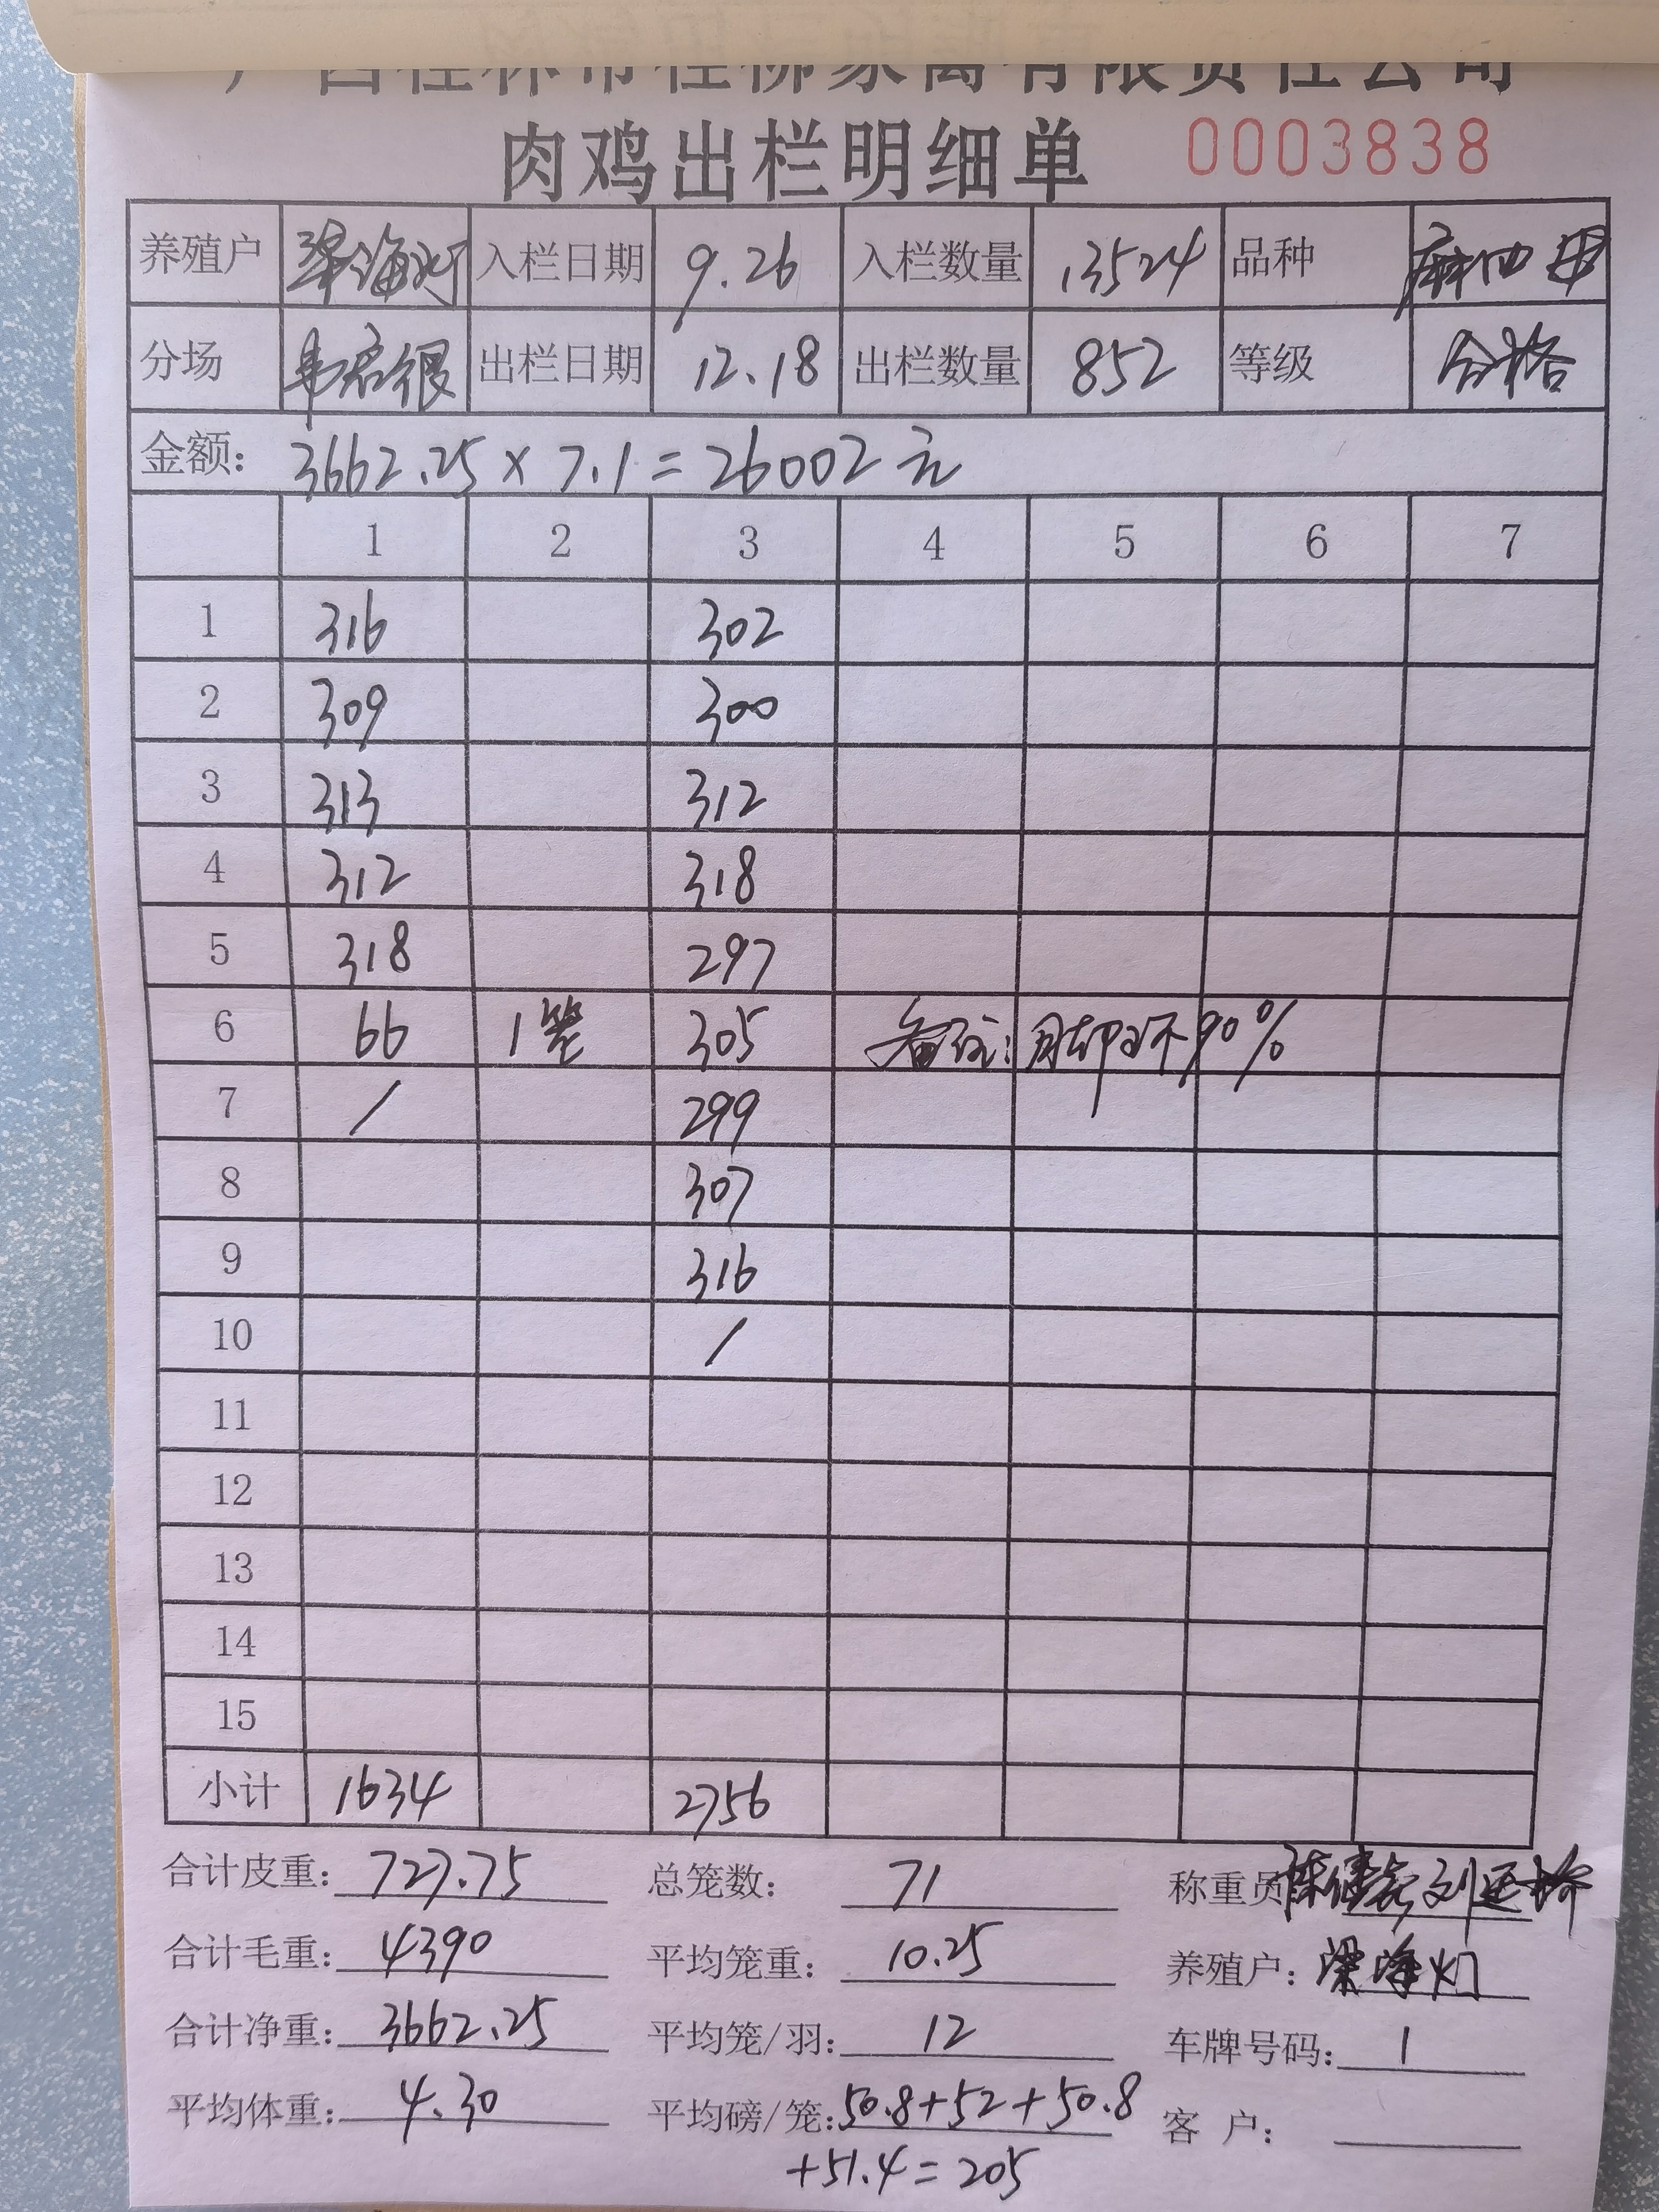 广西桂林市桂柳家禽有限责任公司
肉鸡出栏明细单 0003838
养殖户 梁海灯 入栏日期 9.26 入栏数量 13524 品种 麻四
分场 出栏日期 12.18 出栏数量 852 等级 合格
金额: 3662.25 × 7.1 = 26002元
1 2 3 4 5 6 7
1 316 302
2 309 300
3 313 312
4 312 318
5 318 297
6 66 1笼 305 备注: 脚环90%
7 / 299
8 307
9 316
10 /
11
12
13
14
15
小计 1634 2756
合计皮重: 727.75 总笼数: 71 称重员
合计毛重: 4390 平均笼重: 10.25 养殖户: 梁海灯
合计净重: 3662.25 平均笼/羽: 12 车牌号码: 1
平均体重: 4.30 平均磅/笼: 50.8+52+50.8 客 户:
+51.4=205